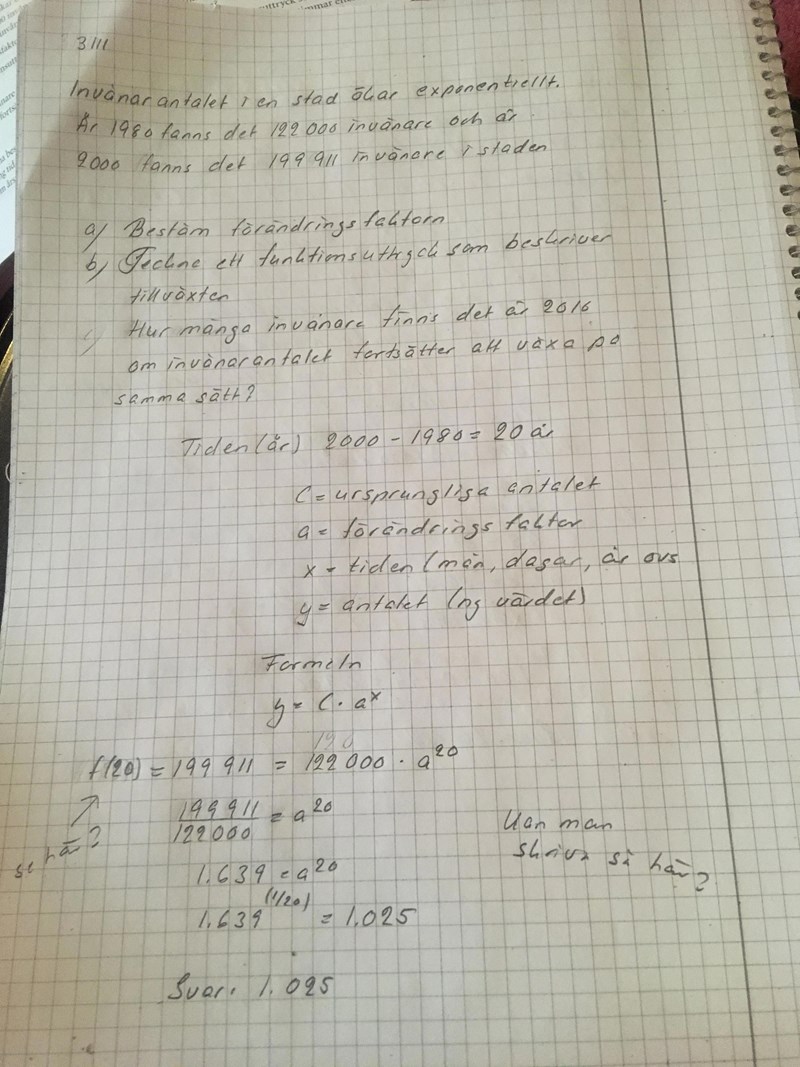 3111
Invånarantalet i en stad ökar exponentiellt.
År 1980 fanns det 122 000 invånare och år
2000 fanns det 199 911 invånare i staden
a) Bestäm förändringsfaktorn
b) Teckna ett funktionsuttryck som beskriver
tillväxten
c) Hur många invånare finns det år 2016
om invånarantalet fortsätter att växa på
samma sätt?
Tiden (år) 2000 - 1980 = 20 år
C = ursprungliga antalet
a = förändringsfaktor
x = tiden (mån, dagar, år osv
y = antalet (ny värdet)
Formeln
y = C · a^x
f(20) = 199 911 = 122 000 · a^20
199 911 / 122000 = a^20
se här?
Kan man
skriva så här?
1.639 = a^20
1.639^(1/20) = 1.025
Svar: 1.025